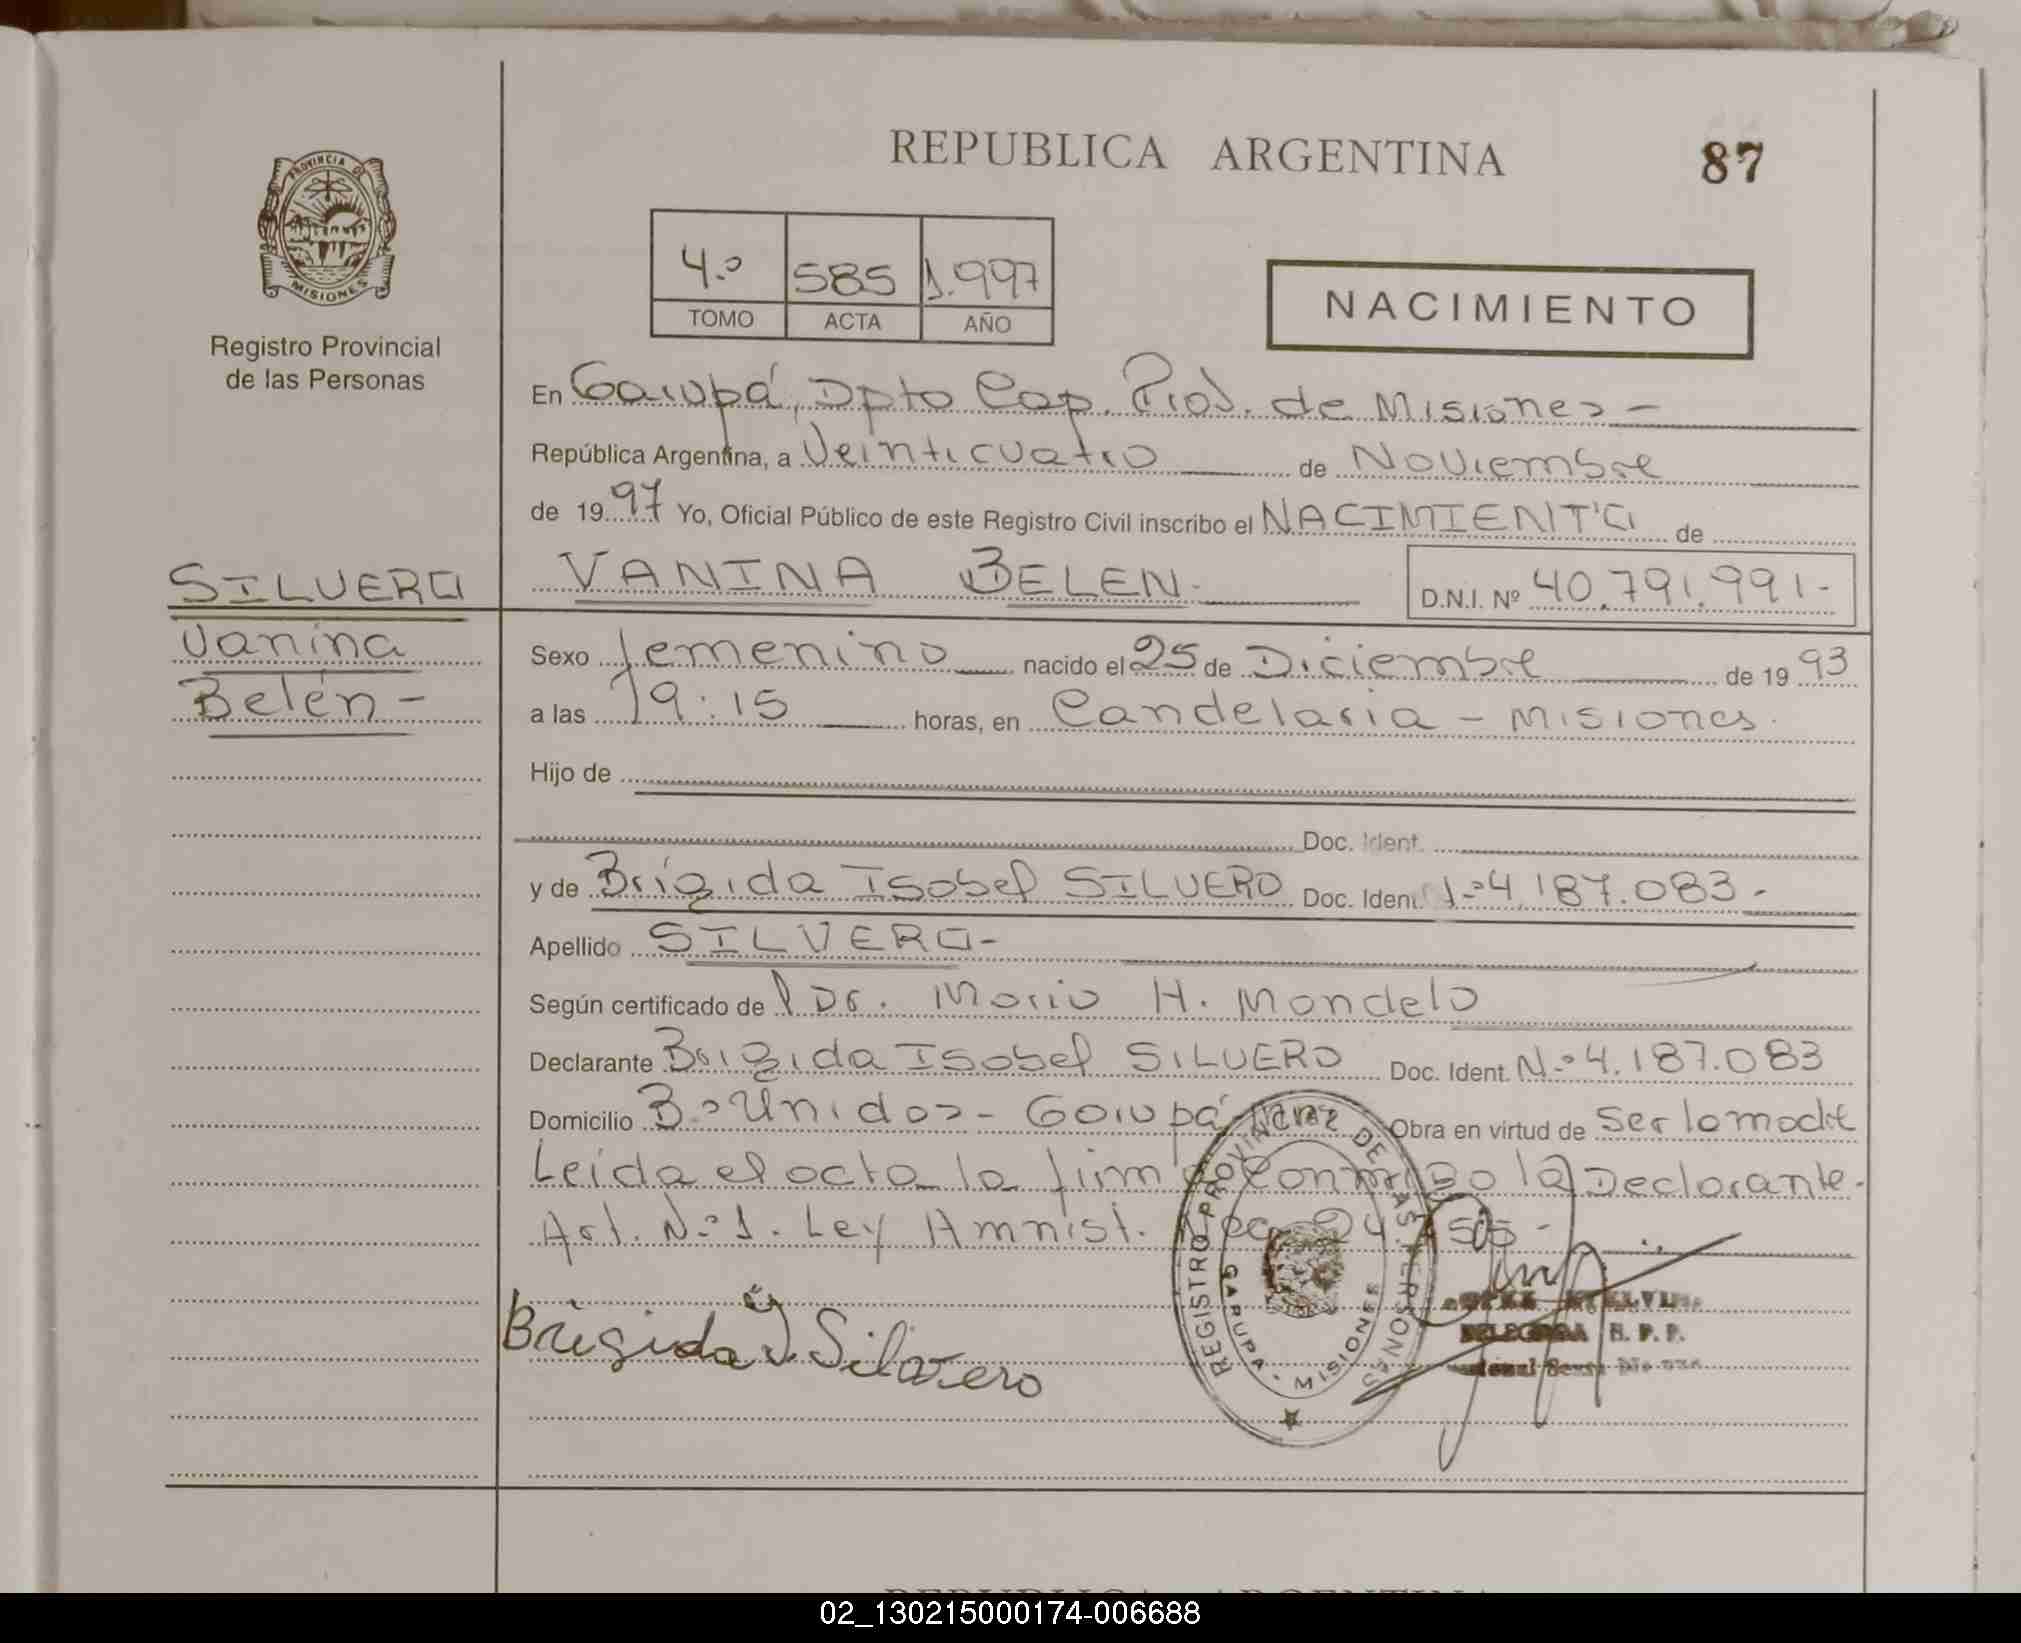 REPUBLICA ARGENTINA
87
PROVINCIA DE
MISIONES
Registro Provincial
de las Personas
4.º 585 1.997
TOMO ACTA AÑO
NACIMIENTO
En Garupá, Dpto Cap. Prov. de Misiones -
República Argentina, a Veinticuatro de Noviembre
de 19 97 Yo, Oficial Público de este Registro Civil inscribo el NACIMIENTO de
VANINA BELEN.
D.N.I. Nº 40.791.991-
SILVERO
Vanina
Belén -
Sexo femenino nacido el 25 de Diciembre de 19 93
a las 19:15 horas, en Candelaria - Misiones.
Hijo de
Doc. Ident.
y de Brígida Isabel SILVERO Doc. Ident. 4.187.083.-
Apellido SILVERO-
Según certificado de Dr. Mario H. Mondelo
Declarante Brigida Isabel SILVERO Doc. Ident. N.º 4.187.083
Domicilio B.º Unidos - Garupá Obra en virtud de ser la madre
Leída el acta la firma conmigo la Declarante.
Art. N.º 1. Ley Amnist.
Brigida I. Silvero
REGISTRO PROVINCIAL DE LAS PERSONAS
GARUPA - MISIONES
DELEGADA R. P. P.
02_130215000174-006688